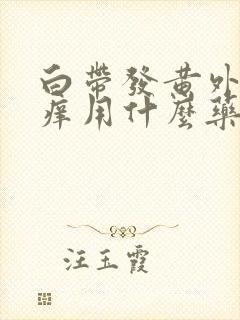 白帶發黄外
痒用什麼藥
汪玉霞